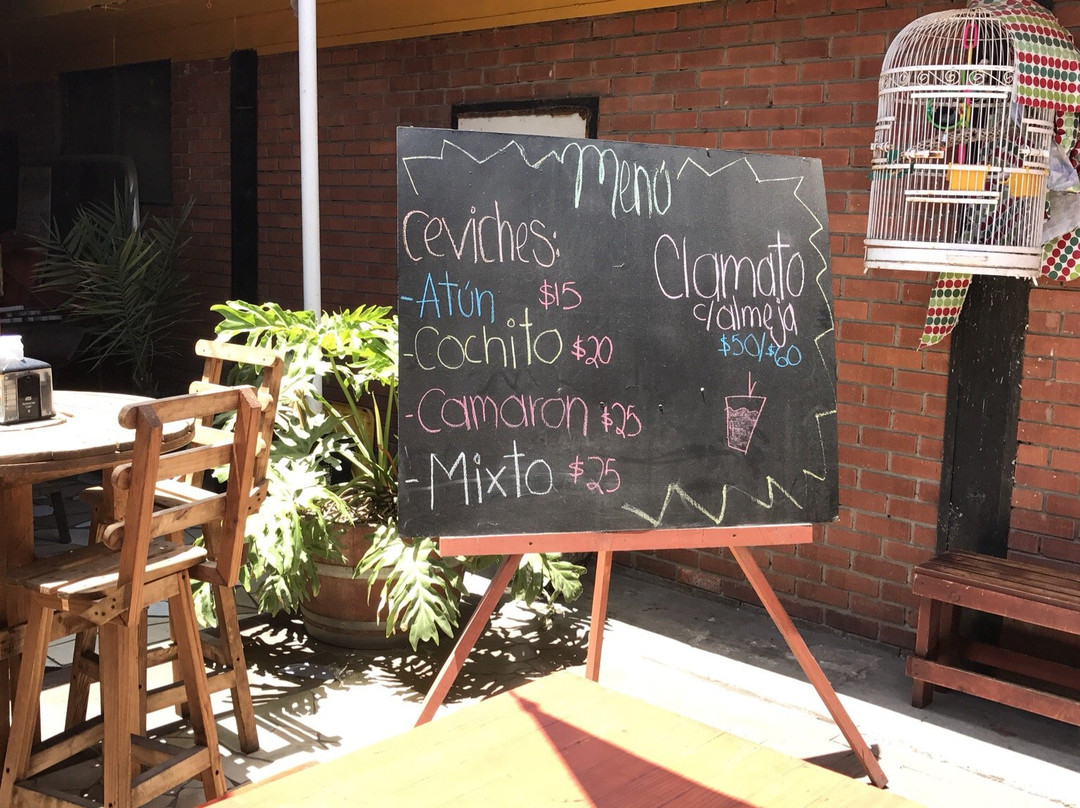 Menú
Ceviches:
-Atún $15
-Cochito $20
-Camarón $25
-Mixto $25
Clamato
c/almeja
$50/$60